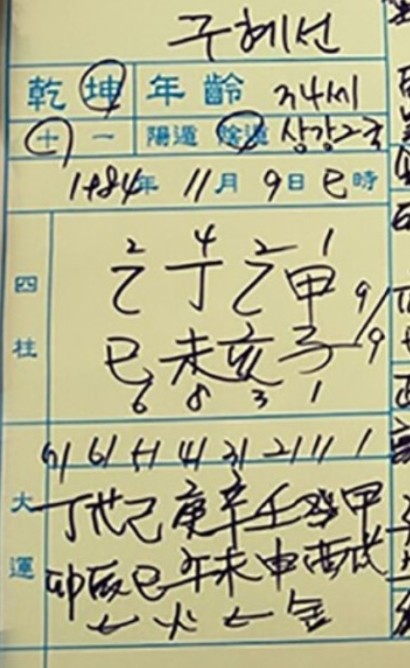 구혜선
乾 坤 年齡 34세
十 一 陽遁 陰遁 상강2국
1984年 11月 9日 巳時
四柱
2 4 2 1
乙 丁 乙 甲 9/
巳 未 亥 子 9
6 8 3 1
71 61 51 41 31 21 11 1
大運
丁 戊 己 庚 辛 壬 癸 甲
卯 辰 巳 午 未 申 酉 戌
← 火 ← 金